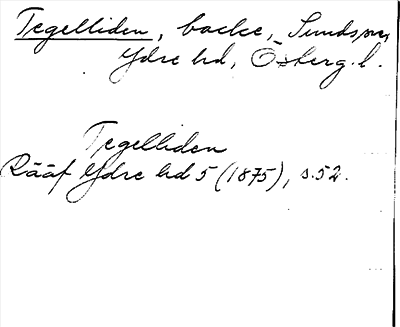 Tegelliden, backe, Sunds sn,
Ydre hd, Österg. l.
Tegelliden
Rääf Ydre hd 5 (1875), s. 52.